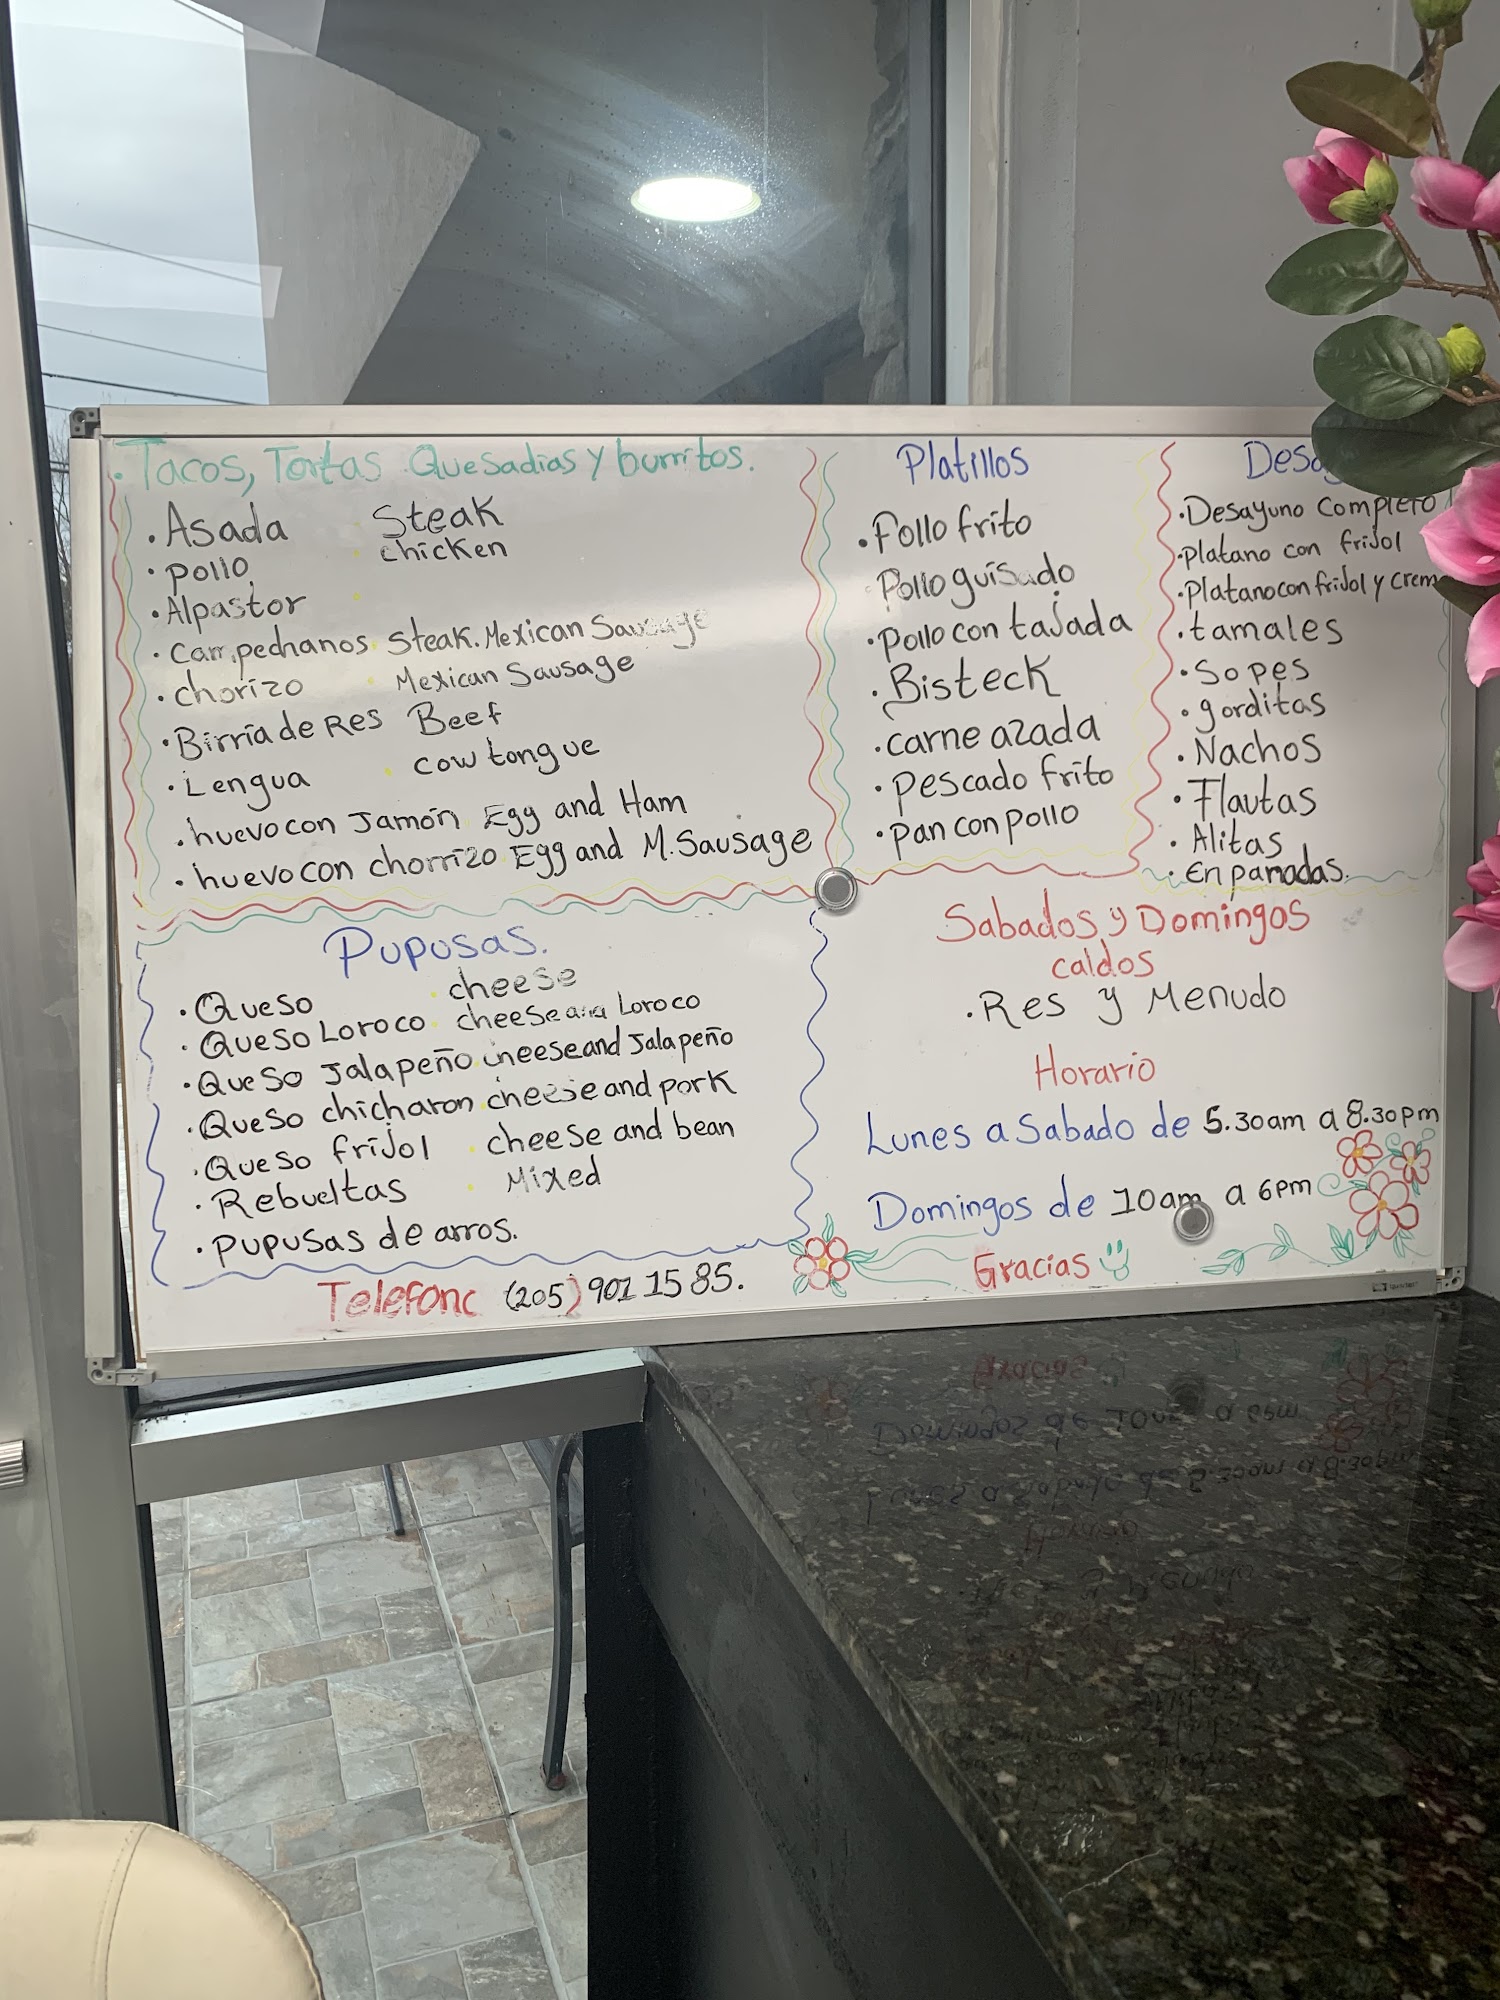 . Tacos, Tortas Quesadias y burritos.
. Asada Steak
. pollo chicken
. Alpastor
. campechanos Steak. Mexican Sausage
. chorizo Mexican Sausage
. Birria de Res Beef
. Lengua cow tongue
. huevo con Jamón Egg and Ham
. huevo con chorrizo Egg and M. Sausage
Platillos
. Pollo frito
Pollo guisado
. pollo con tajada
. Bisteck
. carne azada
. Pescado frito
. pan con pollo
. Desayuno completo
. platano con frijol
. Platano con frijol y crem
. tamales
. Sopes
. gorditas
. Nachos
. Flautas
. Alitas
. Enpanadas.
Pupusas.
. Queso cheese
. Queso Loroco cheese and Loroco
. Queso Jalapeño cheese and Jalapeño
. Queso chicharon cheese and pork
. Queso frijol cheese and bean
. Rebueltas Mixed
. pupusas de arros.
Telefono (205) 901 1585.
Sabados y Domingos
caldos
. Res y Menudo
Horario
Lunes a Sabado de 5.30am a 8.30pm
Domingos de 10am a 6pm
Gracias